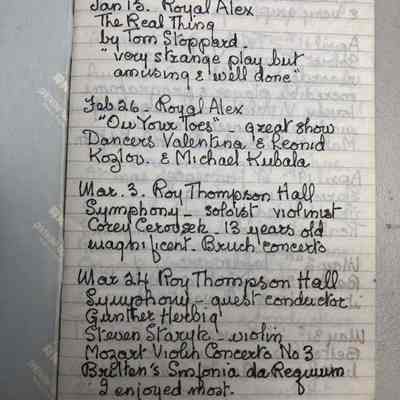 Jan 13. Royal Alex
The Real Thing
by Tom Stoppard.
"very strange play but
amusing & well done"
Feb 26 - Royal Alex
"On Your Toes" - great show
Dancers Valentina & Leonid
Kozlov. & Michael Kubala
Mar. 3. Roy Thompson Hall
Symphony - soloist violinist
Corey Cerovsek - 13 years old
magnificent. Bruch concerto
Mar 24 Roy Thompson Hall
Symphony - guest conductor
Günther Herbig
Steven Staryk - violin
Mozart Violin Concerto No 3
Britten's Sinfonia da Requium
I enjoyed most.